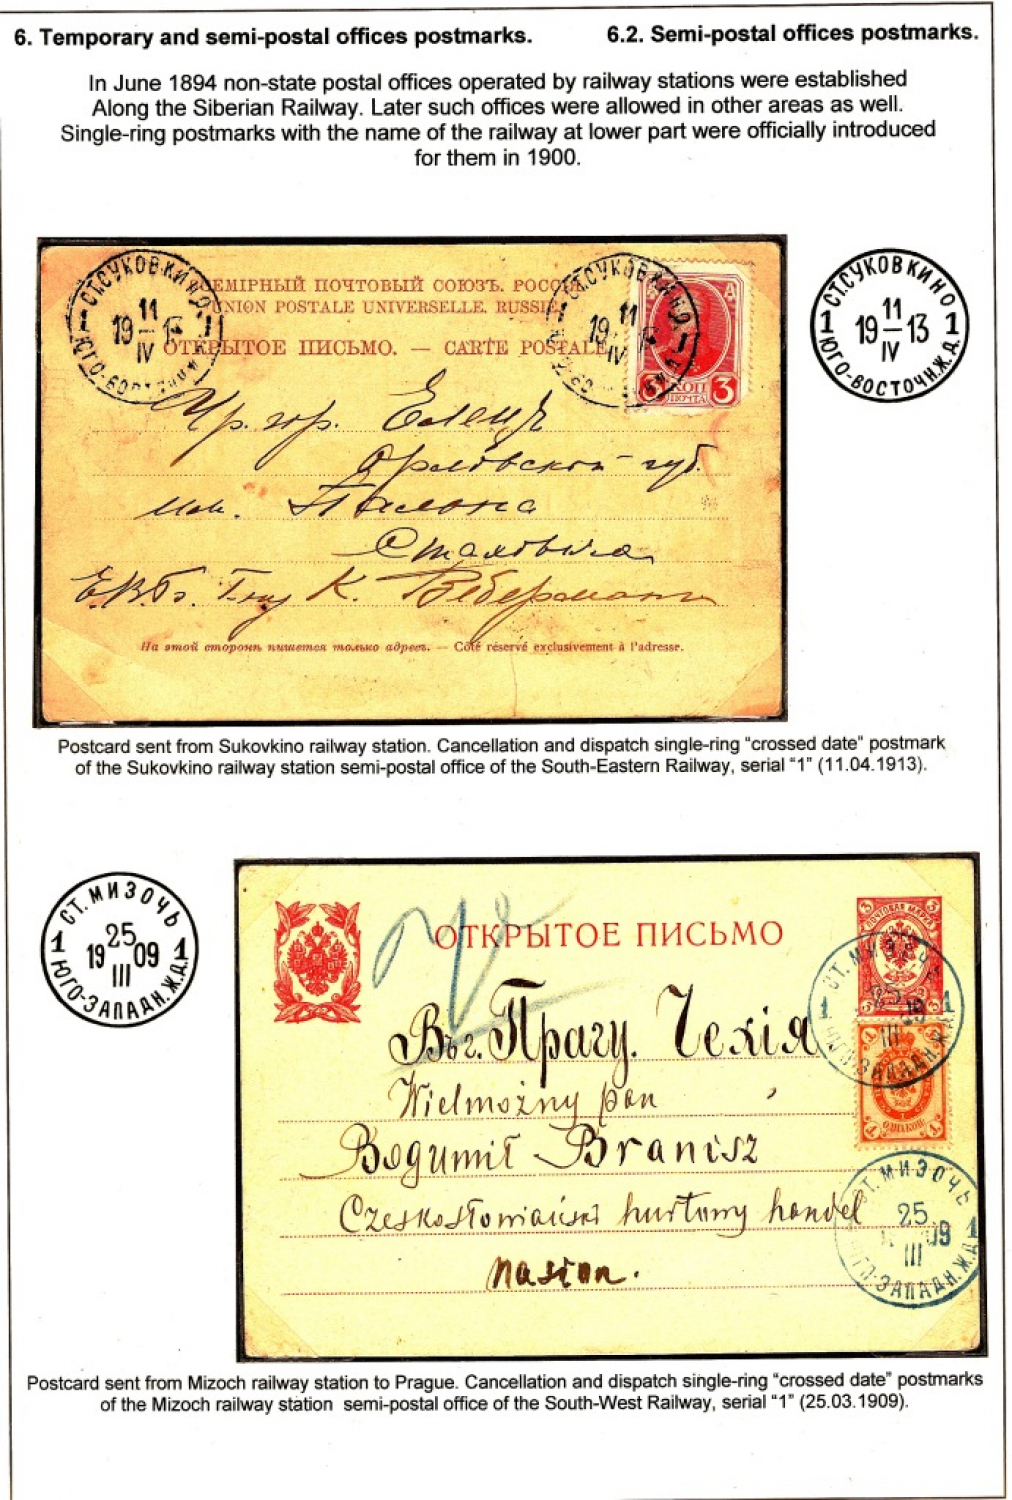 6. Temporary and semi-postal offices postmarks. 6.2. Semi-postal offices postmarks.
In June 1894 non-state postal offices operated by railway stations were established
Along the Siberian Railway. Later such offices were allowed in other areas as well.
Single-ring postmarks with the name of the railway at lower part were officially introduced
for them in 1900.
СТ.СУКОВКИНО
11
1 19 13 1
IV
ЮГО-ВОСТОЧН.Ж.Д.
СЕМІРНЫЙ ПОЧТОВЫЙ СОЮЗЪ. РОССІ
UNION POSTALE UNIVERSELLE. RUSSIE
ОТКРЫТОЕ ПИСЬМО. — CARTE POSTALE
СТ.СУКОВКИНО
11
19
IV
КОП 3
ПОЧТА
Елецъ
Орловской губ.
Стаховича
К.
На этой сторонѣ пишется только адресъ. — Côté réservé exclusivement à l'adresse.
Postcard sent from Sukovkino railway station. Cancellation and dispatch single-ring “crossed date” postmark
of the Sukovkino railway station semi-postal office of the South-Eastern Railway, serial “1” (11.04.1913).
СТ. МИЗОЧЬ
25
1 19 09 1
III
ЮГО-ЗАПАДН.Ж.Д.
ОТКРЫТОЕ ПИСЬМО
3 ПОЧТОВАЯ МАРКА 3
Въ г. Прагу. Чехія
Wielmożny pan
Bogumił Branisz
hurtowny handel
nasion.
СТ. МИЗОЧЬ
25
09 1
III
ЮГО-ЗАПАДН.Ж.Д.
Postcard sent from Mizoch railway station to Prague. Cancellation and dispatch single-ring “crossed date” postmarks
of the Mizoch railway station semi-postal office of the South-West Railway, serial “1” (25.03.1909).